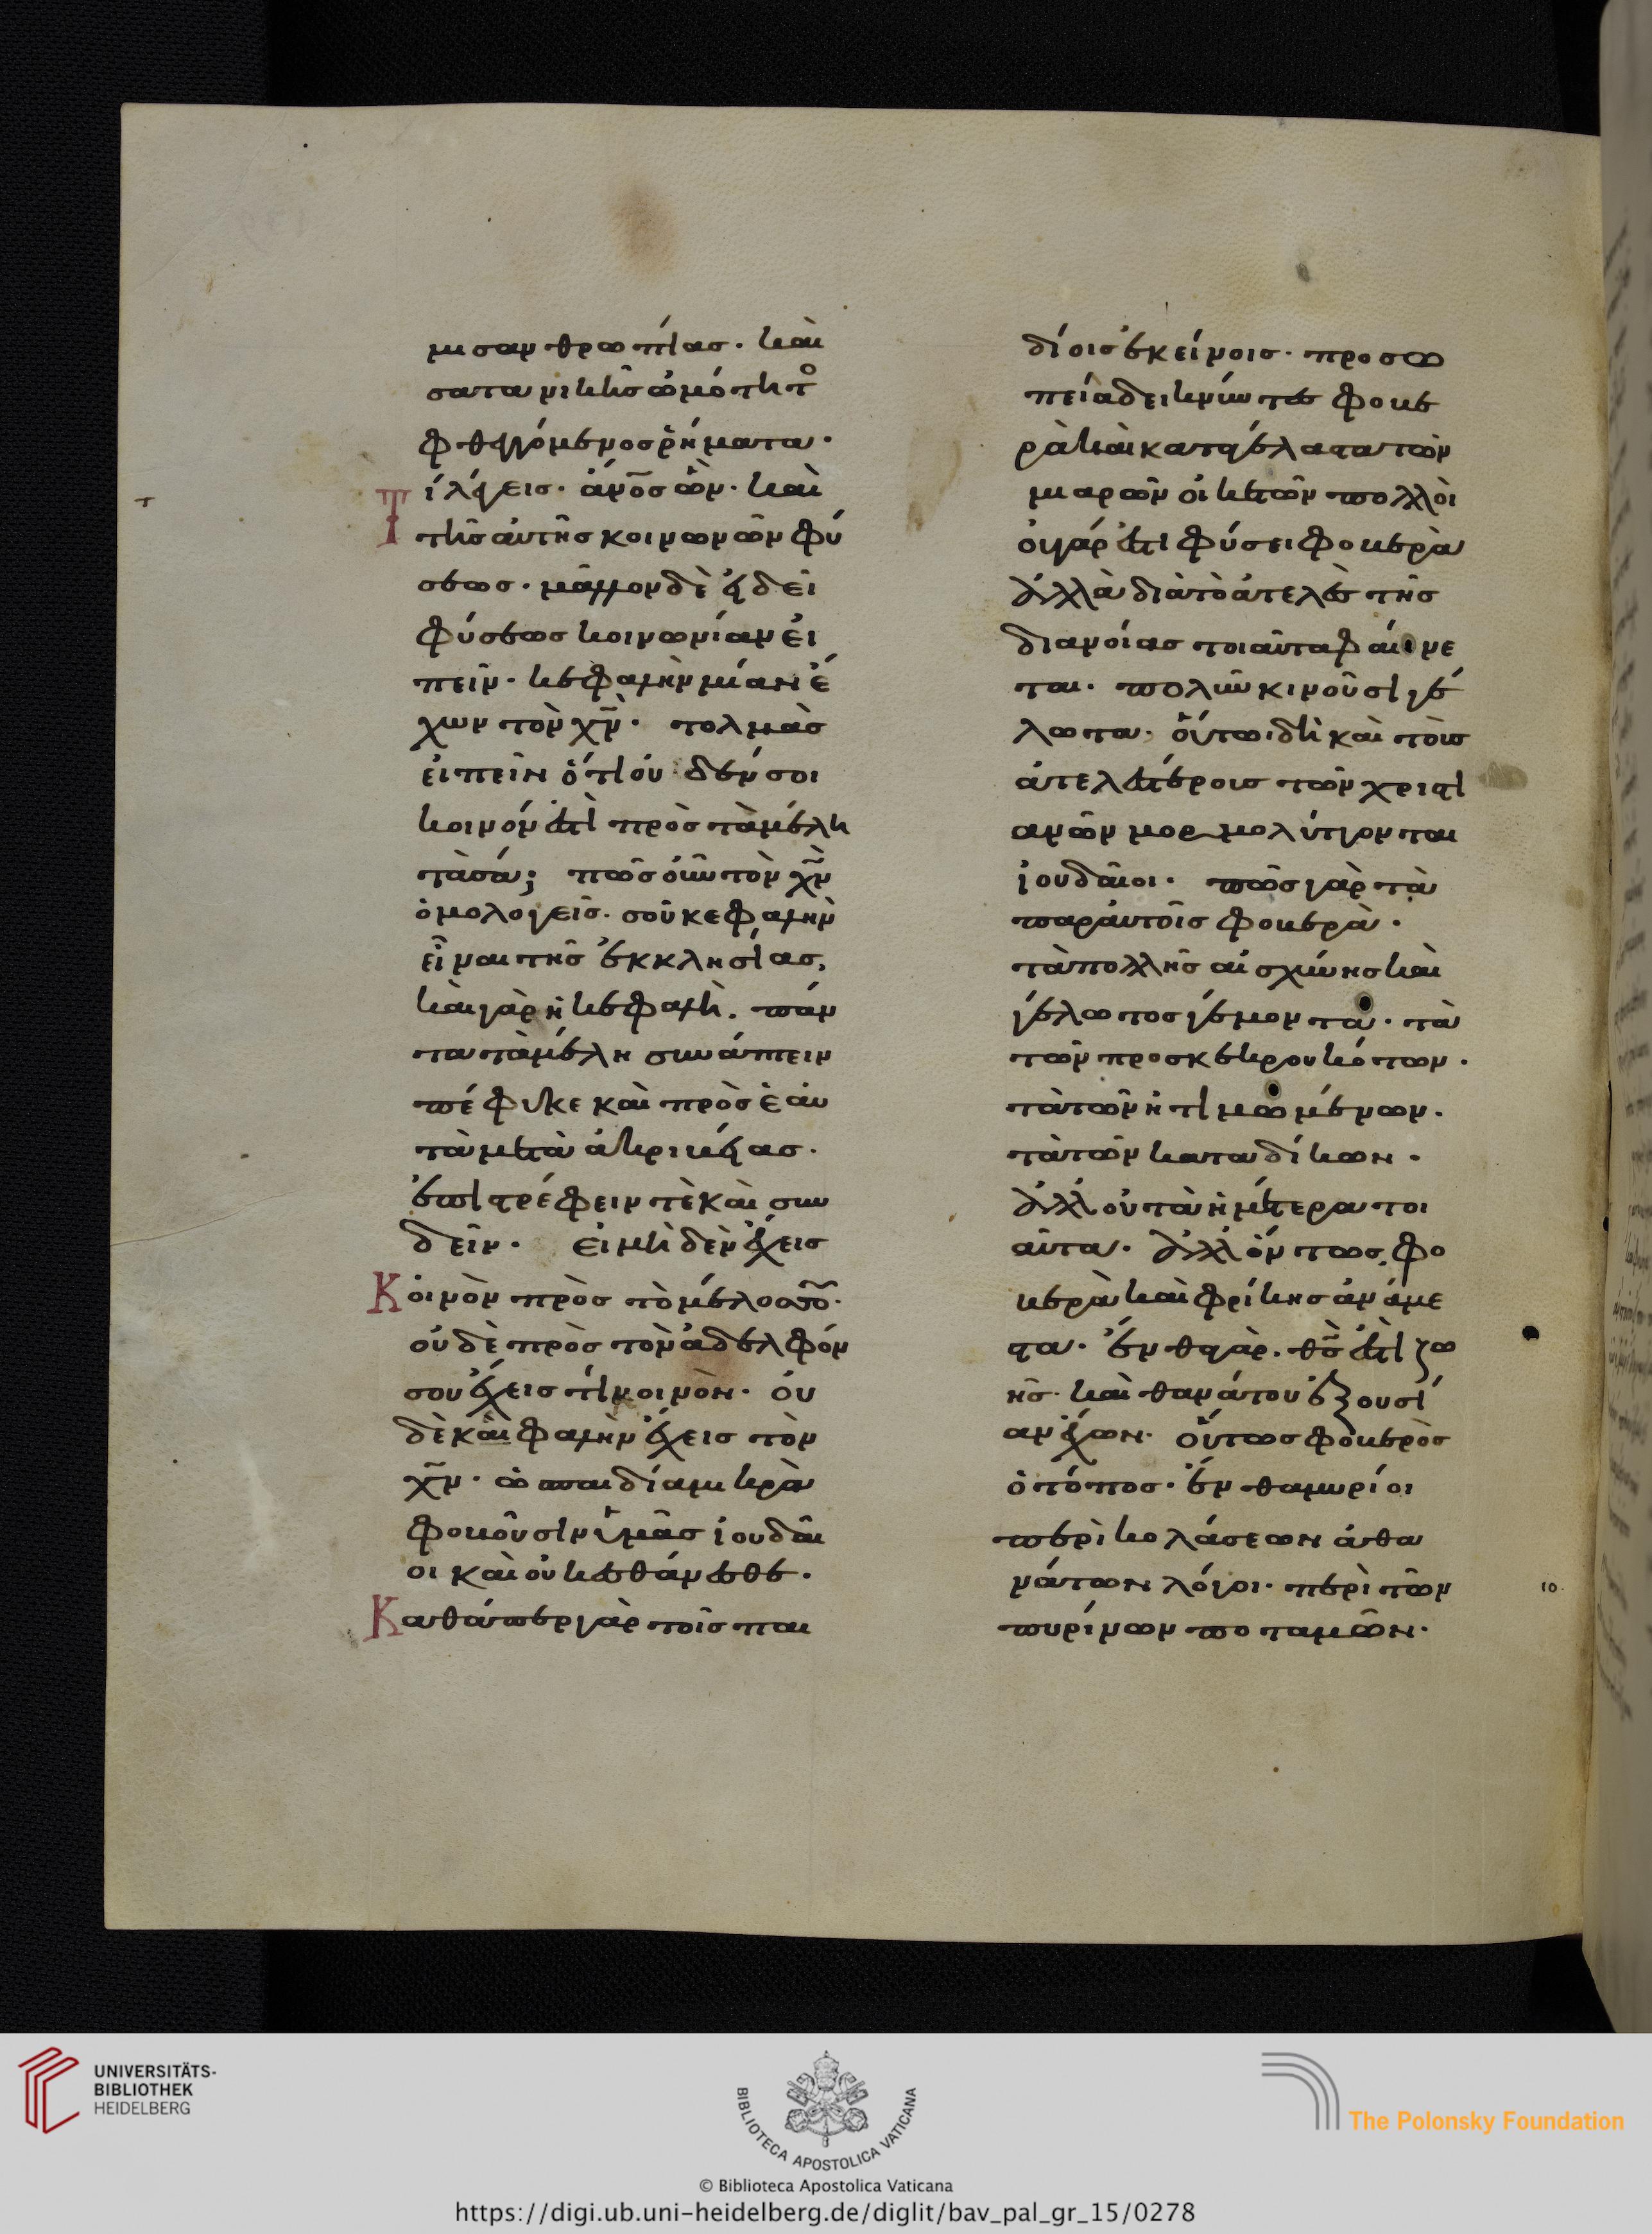 μισανθρωπίας· και
σατανικῆς ὠμότητο
φθεγγόμενος ῥήματα·
Τί λέγεις· ἄνος ὢν· καὶ
τῆς αὐτῆς κοινωνῶν φύ
σεως· μᾶλλον δὲ εἰ δεῖ
φύσεως κοινωνίαν εἰ
πεῖν· κεφαλὴν μίαν ἔ
χων τὸν χν· τολμᾶς
εἰπεῖν ὅτι οὐδέν σοι
κοινόν ἐστὶ πρὸς τὰ μέλη
τὰ σά; πῶς οὖν τὸν χν
ὁμολογεῖς. σοῦ κεφαλὴν
εἶναι τῆς ἐκκλησίας,
καὶ γὰρ ἡ κεφαλὴ. πάν
τα τὰ μέλη συνάπτειν
πέφυκε καὶ πρὸς ἑαυ
τὰ μετὰ ἀκριβείας.
ἐπιστρέφειν τὲ καὶ συν
δεῖν. εἰ μὴ δὲν ἔχεις
Κοινὸν πρὸς τὸ μέλος
οὐδὲ πρὸς τὸν ἀδελφόν
σου ἔχεις τί κοινὸν. οὐ
δὲ κεφαλὴν ἔχεις τὸν
χν. ὦ παιδία μικρὰ
φοβοῦσιν ὑμᾶς ἰουδαῖ
οι καὶ οὐκ αἰσθάνεσθε.
Καθάπερ γὰρ τοῖς παι
δίοις ἐκείνοις. προσω
πεία δεικνύντες φοβε
ρὰ καὶ καταγέλαστα τῶν
μιαρῶν οἰκετῶν πολλοὶ
οὐ γάρ ἐστι φύσει φοβερὰ
ἀλλὰ διὰ τὸ ἀτελὲς τῆς
διανοίας τοιαῦτα φαίνε
ται. πολὺν κινοῦσι γέ
λωτα. οὕτω δὴ καὶ τοῖς
ἀτελεστέροις τῶν χριστι
ανῶν μορμολύττονται
ἰουδαῖοι. πῶς γὰρ τὰ
παρ αὐτοῖς φοβερὰ.
τὰ πολλῆς αἰσχύνης καὶ
γέλωτος γέμοντα. τὰ
τῶν προσκεκρουκότων.
τὰ τῶν ἠτιμωμένων.
τὰ τῶν καταδίκων.
ἀλλ οὐ τὰ ἡμέτερα τοι
αῦτα. ἀλλ ὄντως φο
βερὰ καὶ φρίκης ἀνάμε
στα. ἔνθα γὰρ. θς ἐστὶ ζω
ῆς. καὶ θανάτου ἐξουσί
αν ἔχων. οὕτως φοβερὸς
ὁ τόπος. ἔνθα μυρίοι
περὶ κολάσεων ἀθα
νάτων λόγοι. περὶ τῶν
πυρίνων ποταμῶν.
10.
UNIVERSITÄTS-
BIBLIOTHEK
HEIDELBERG
BIBLIOTECA APOSTOLICA VATICANA
The Polonsky Foundation
© Biblioteca Apostolica Vaticana
https://digi.ub.uni-heidelberg.de/diglit/bav_pal_gr_15/0278